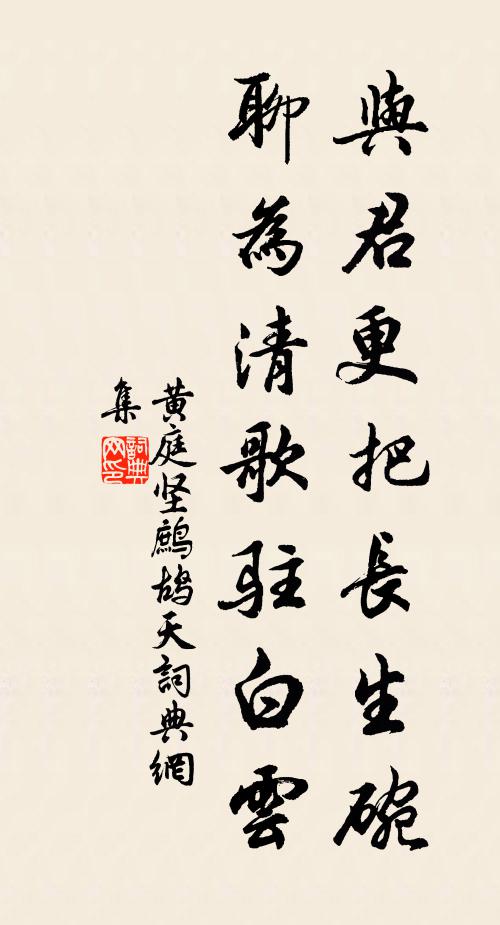 與君更把長生碗
聊為清歌駐白雲
黄庭坚鷓鴣天詞典網
集
詞典
网印